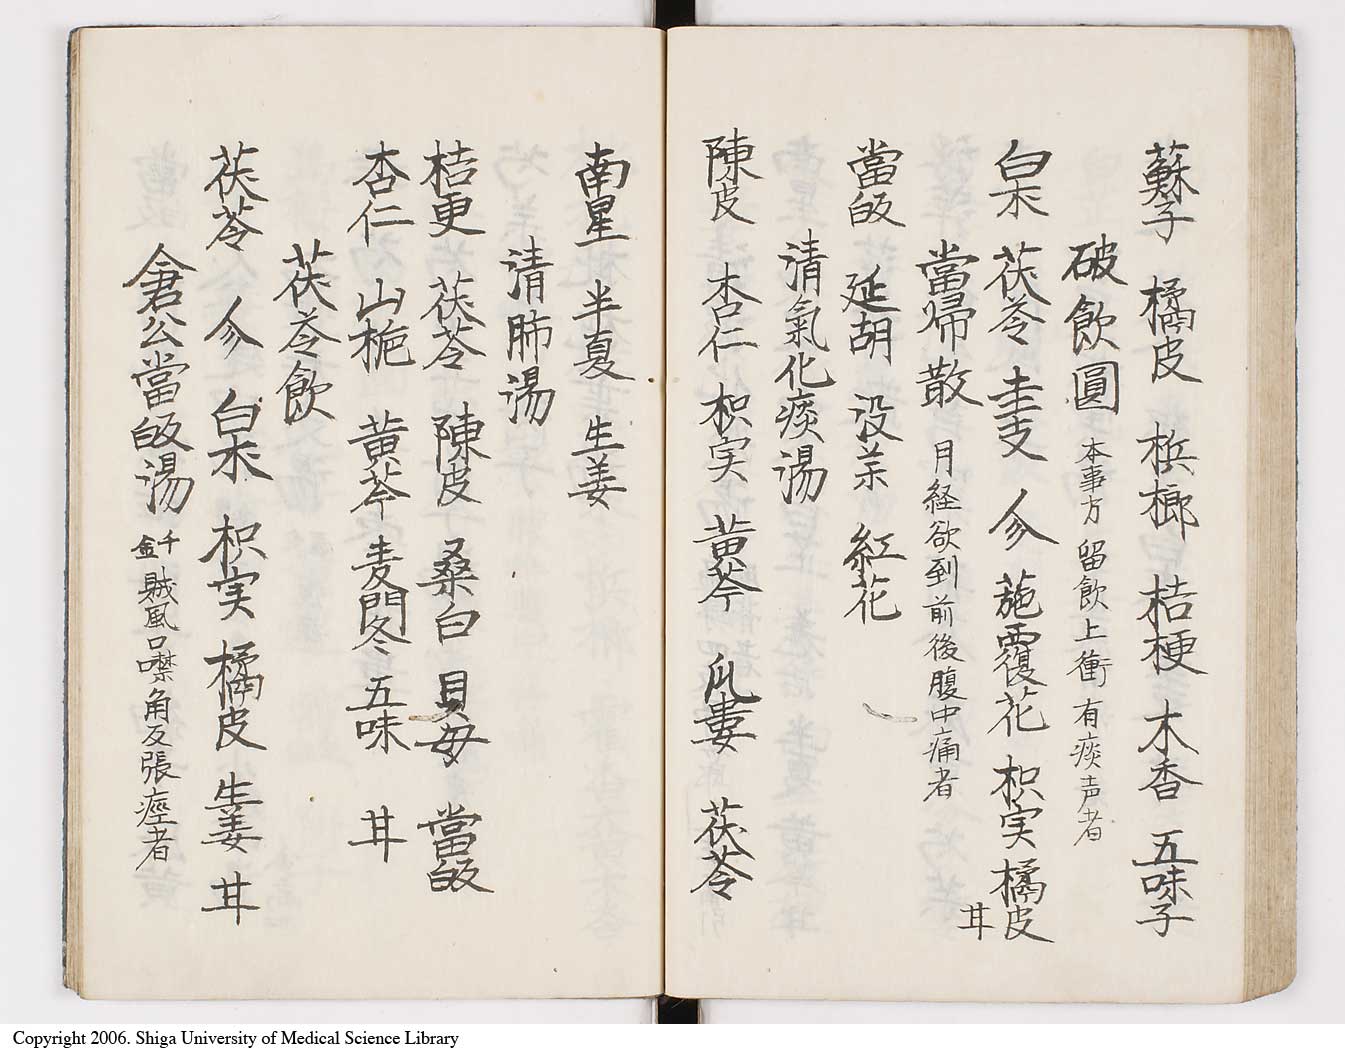 蘇子 橘皮 梹榔 桔梗 木香 五味子
破飲圓 本事方 留飲上衝有痰声者
白朮 茯苓 圭支 人参 旋覆花 枳実 橘皮
甘
當帰散 月経欲到前後腹中痛者
當皈 延胡 没薬 紅花
清氣化痰湯
陳皮 杏仁 枳実 黄芩 瓜蔞 茯苓
南星 半夏 生姜
清肺湯
桔更 茯苓 陳皮 桑白 貝母 當皈
杏仁 山梔 黄芩 麦門冬 五味 甘
茯苓飲
茯苓 参 白朮 枳実 橘皮 生姜 甘
倉公當皈湯 千金 賊風口噤角反張痙者
Copyright 2006. Shiga University of Medical Science Library